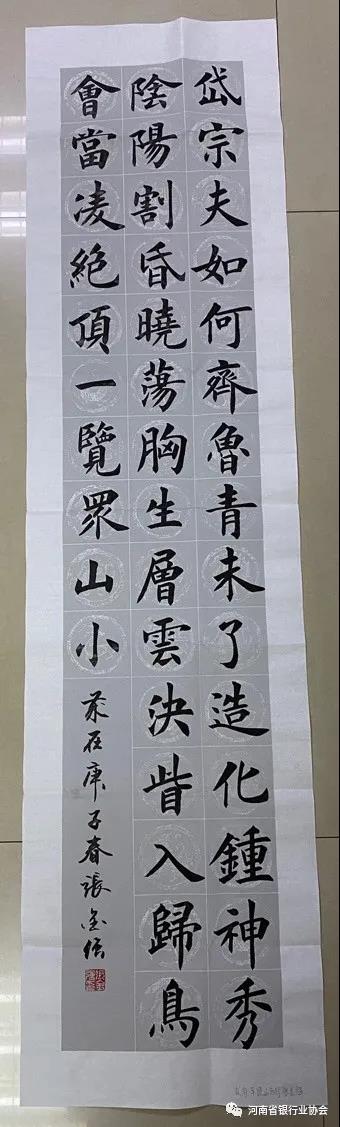 岱宗夫如何齊魯青未了造化鍾神秀
陰陽割昏曉蕩胸生層雲決眥入歸鳥
會當凌絕頂一覽眾山小
歲在庚子春張
河南省银行业协会